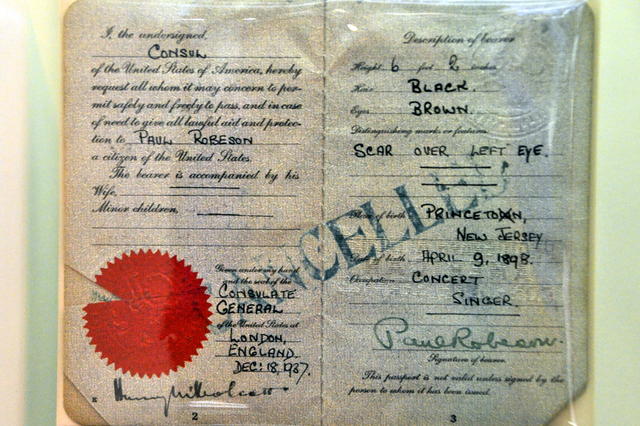 I, the undersigned,
CONSUL
of the United States of America, hereby
request all whom it may concern to per-
mit safely and freely to pass, and in case
of need to give all lawful aid and protec-
tion to PAUL ROBESON
a citizen of the United States.
The bearer is accompanied by his
Wife,
Minor children,
Given under my hand
and the seal of the
CONSULATE
GENERAL
of the United States at
LONDON,
ENGLAND.
DEC: 18, 1937.
2
Description of bearer
Height 6 feet 2 inches
Hair BLACK.
Eyes BROWN.
Distinguishing marks or features
SCAR OVER LEFT EYE.
CANCELLED
Place of birth PRINCETON,
NEW JERSEY
Date of birth APRIL 9, 1898.
Occupation CONCERT
SINGER
Paul Robeson.
Signature of bearer.
This passport is not valid unless signed by the
person to whom it has been issued.
3